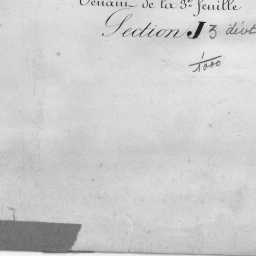 Tenant de la 3e feuille
Section J 3 dévt
1/1000